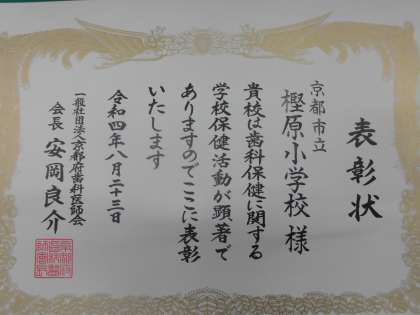 表彰状
京都市立
樫原小学校 様
貴校は歯科保健に関する
学校保健活動が顕著で
ありますのでここに表彰
いたします
令和四年八月二十三日
一般社団法人京都府歯科医師会
会長 安岡良介